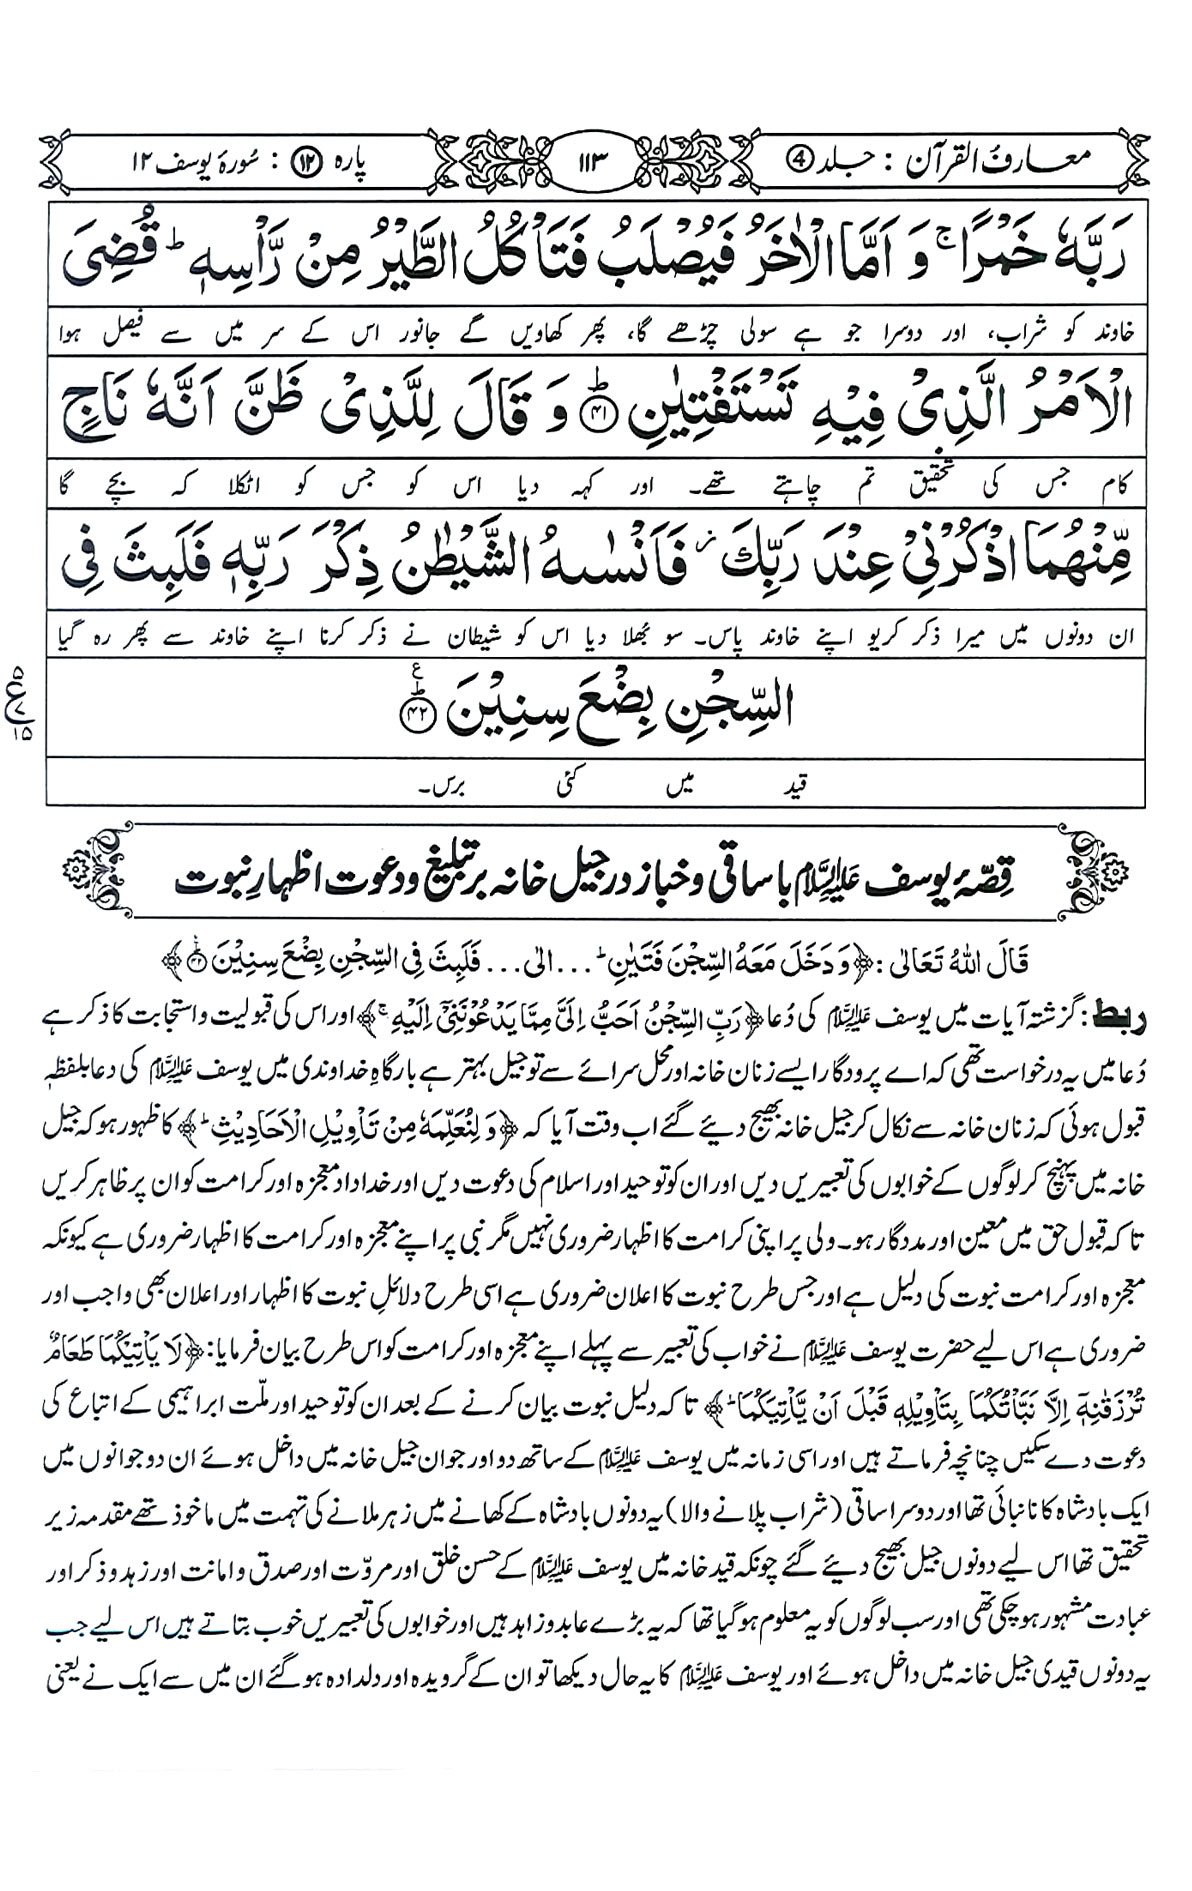 معارفُ القرآن : جلد ④
۱۱۳
پارہ ⑫ : سُورۂ یوسف ۱۲
رَبَّهٗ خَمْرًا ۚ وَ اَمَّا الْاٰخَرُ فَيُصْلَبُ فَتَاْكُلُ الطَّيْرُ مِنْ رَّاْسِهٖ ؕ قُضِىَ
خاوند کو شراب، اور دوسرا جو ہے سولی چڑھے گا، پھر کھاویں گے جانور اس کے سر میں سے فیصل ہوا
الْاَمْرُ الَّذِىْ فِيْهِ تَسْتَفْتِيٰنِ ؕ ﴿۴۱﴾ وَ قَالَ لِلَّذِىْ ظَنَّ اَنَّهٗ نَاجٍ
کام جس کی تحقیق تم چاہتے تھے۔ اور کہہ دیا اس کو جس کو اٹکلا کہ بچے گا
مِّنْهُمَا اذْكُرْنِىْ عِنْدَ رَبِّكَ ؗ فَاَنْسٰىهُ الشَّيْطٰنُ ذِكْرَ رَبِّهٖ فَلَبِثَ فِى
ان دونوں میں میرا ذکر کریو اپنے خاوند پاس۔ سو بُھلا دیا اس کو شیطان نے ذکر کرنا اپنے خاوند سے پھر رہ گیا
السِّجْنِ بِضْعَ سِنِيْنَ ؕ ﴿۴۲﴾ ع
۵ ع ۷ ۱۵
قید میں کئی برس۔
قِصّۂ یوسف علیہ السلام با ساقی و خباز در جیل خانہ بر تبلیغ و دعوت اظہارِ نبوت
قَالَ اللهُ تَعَالٰى : ﴿وَ دَخَلَ مَعَهُ السِّجْنَ فَتَيٰنِ ؕ ... الٰی ... فَلَبِثَ فِى السِّجْنِ بِضْعَ سِنِيْنَ ۴۲﴾
ربط : گزشتہ آیات میں یوسف علیہ السلام کی دُعا ﴿رَبِّ السِّجْنُ اَحَبُّ اِلَىَّ مِمَّا يَدْعُوْنَنِىْۤ اِلَيْهِ ۚ﴾ اور اس کی قبولیت و استجابت کا ذکر ہے
دُعا میں یہ درخواست تھی کہ اے پرودگار ایسے زنان خانہ اور محل سرائے سے تو جیل بہتر ہے بارگاہِ خداوندی میں یوسف علیہ السلام کی دعا بلفظہٖ
قبول ہوئی کہ زنان خانہ سے نکال کر جیل خانہ بھیج دیے گئے اب وقت آیا کہ ﴿وَ لِنُعَلِّمَهٗ مِنْ تَاْوِيْلِ الْاَحَادِيْثِ ؕ﴾ کا ظہور ہو کہ جیل
خانہ میں پہنچ کر لوگوں کے خوابوں کی تعبیریں دیں اور ان کو توحید اور اسلام کی دعوت دیں اور خداداد معجزہ اور کرامت کو ان پر ظاہر کریں
تاکہ قبول حق میں معین اور مددگار ہو۔ ولی پر اپنی کرامت کا اظہار ضروری نہیں مگر نبی پر اپنے معجزہ اور کرامت کا اظہار ضروری ہے کیونکہ
معجزہ اور کرامت نبوت کی دلیل ہے اور جس طرح نبوت کا اعلان ضروری ہے اسی طرح دلائلِ نبوت کا اظہار اور اعلان بھی واجب اور
ضروری ہے اس لیے حضرت یوسف علیہ السلام نے خواب کی تعبیر سے پہلے اپنے معجزہ اور کرامت کو اس طرح بیان فرمایا: ﴿لَا يَاْتِيْكُمَا طَعَامٌ
تُرْزَقٰنِهٖۤ اِلَّا نَبَّاْتُكُمَا بِتَاْوِيْلِهٖ قَبْلَ اَنْ يَّاْتِيَكُمَا ؕ﴾ تاکہ دلیل نبوت بیان کرنے کے بعد ان کو توحید اور ملّت ابراہیمی کے اتباع کی
دعوت دے سکیں چنانچہ فرماتے ہیں اور اسی زمانہ میں یوسف علیہ السلام کے ساتھ دو اور جوان جیل خانہ میں داخل ہوئے ان دو جوانوں میں
ایک بادشاہ کا نانبائی تھا اور دوسرا ساقی (شراب پلانے والا) یہ دونوں بادشاہ کے کھانے میں زہر ملانے کی تہمت میں ماخوذ تھے مقدمہ زیر
تحقیق تھا اس لیے دونوں جیل بھیج دیئے گئے چونکہ قید خانہ میں یوسف علیہ السلام کے حسن خلق اور مروّت اور صدق و امانت اور زہد و ذکر اور
عبادت مشہور ہو چکی تھی اور سب لوگوں کو یہ معلوم ہو گیا تھا کہ یہ بڑے عابد و زاہد ہیں اور خوابوں کی تعبیریں خوب بتاتے ہیں اس لیے جب
یہ دونوں قیدی جیل خانہ میں داخل ہوئے اور یوسف علیہ السلام کا یہ حال دیکھا تو ان کے گرویدہ اور دلدادہ ہو گئے ان میں سے ایک نے یعنی